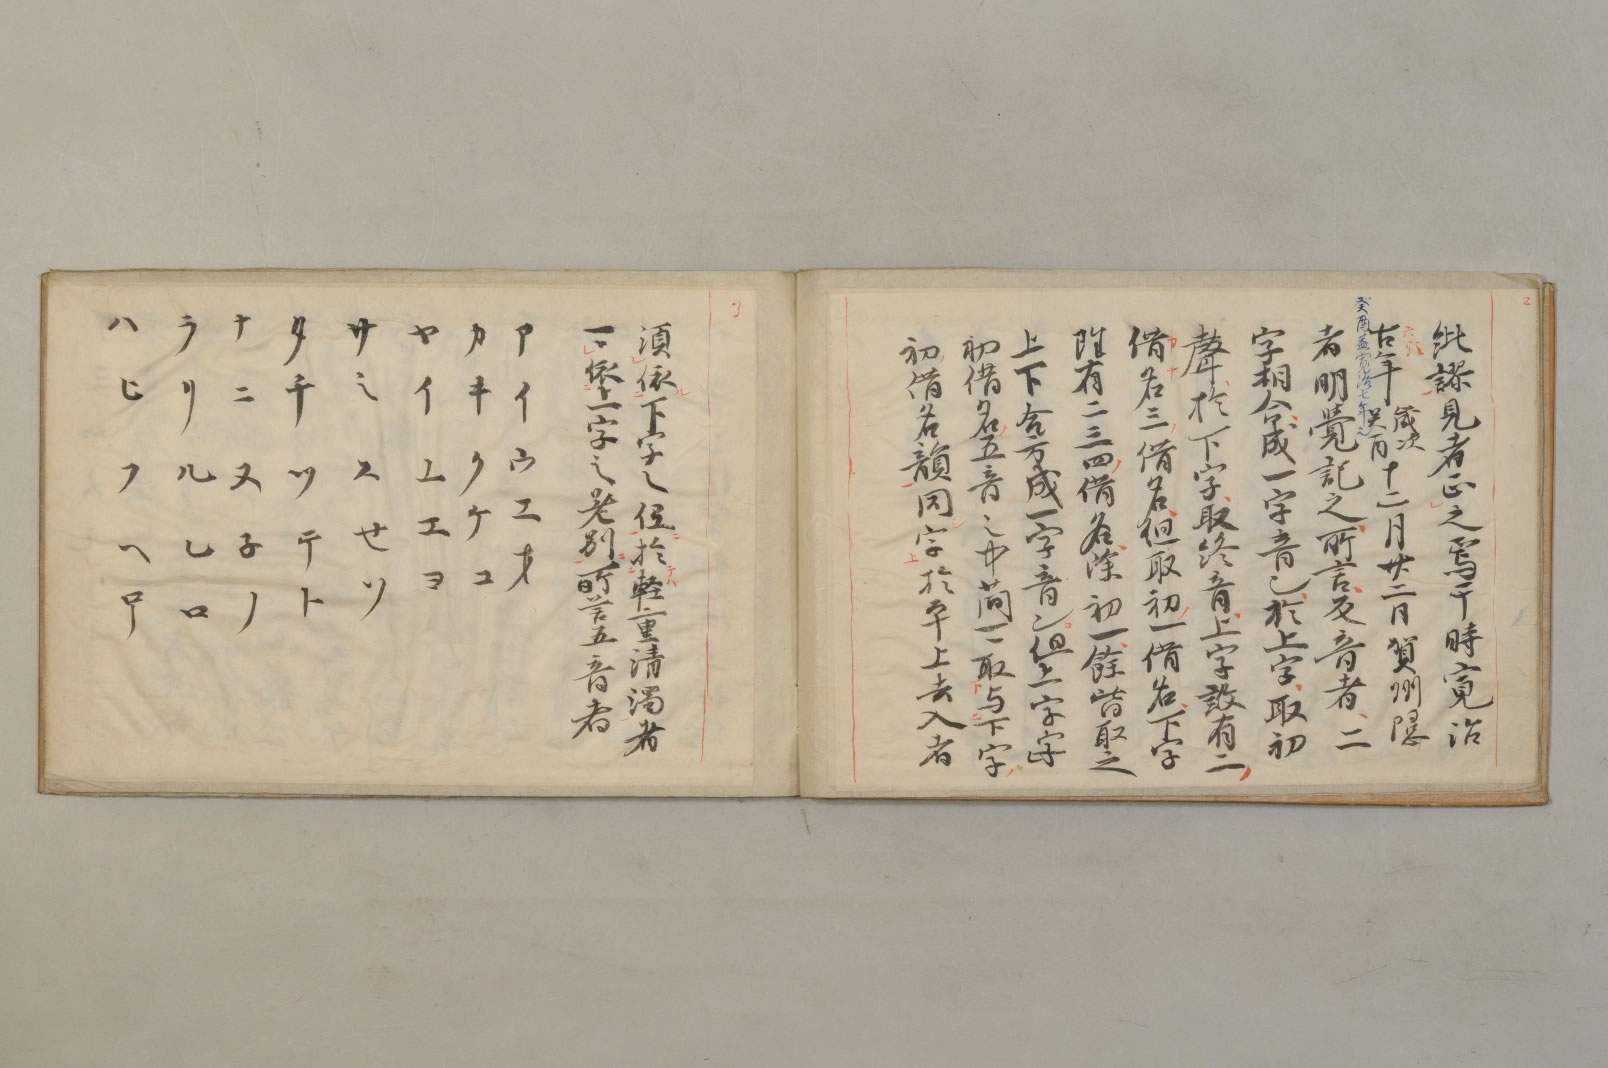 紕謬見者正之焉于時寛治
古年歳次癸酉十二月廿二日賀州隠
癸酉蓋寛治七年也
者明覺記之所言反音者二
字相合成一字音也於上字取初
聲於下字取終音上字設有二
借名三借名但取初一借名下字
雖有二三四借名除初一餘皆取之
上下合方成一字音也但上字
初借名五音之中簡一取与下字
初借名韻同字於平上去入者
須依下字之但於軽重清濁者
一依上字之差別所言五音者
アイウエオ
カキクケコ
ヤイユエヨ
サシスセソ
タチツテト
ナニヌネノ
ラリルレロ
ハヒフヘホ